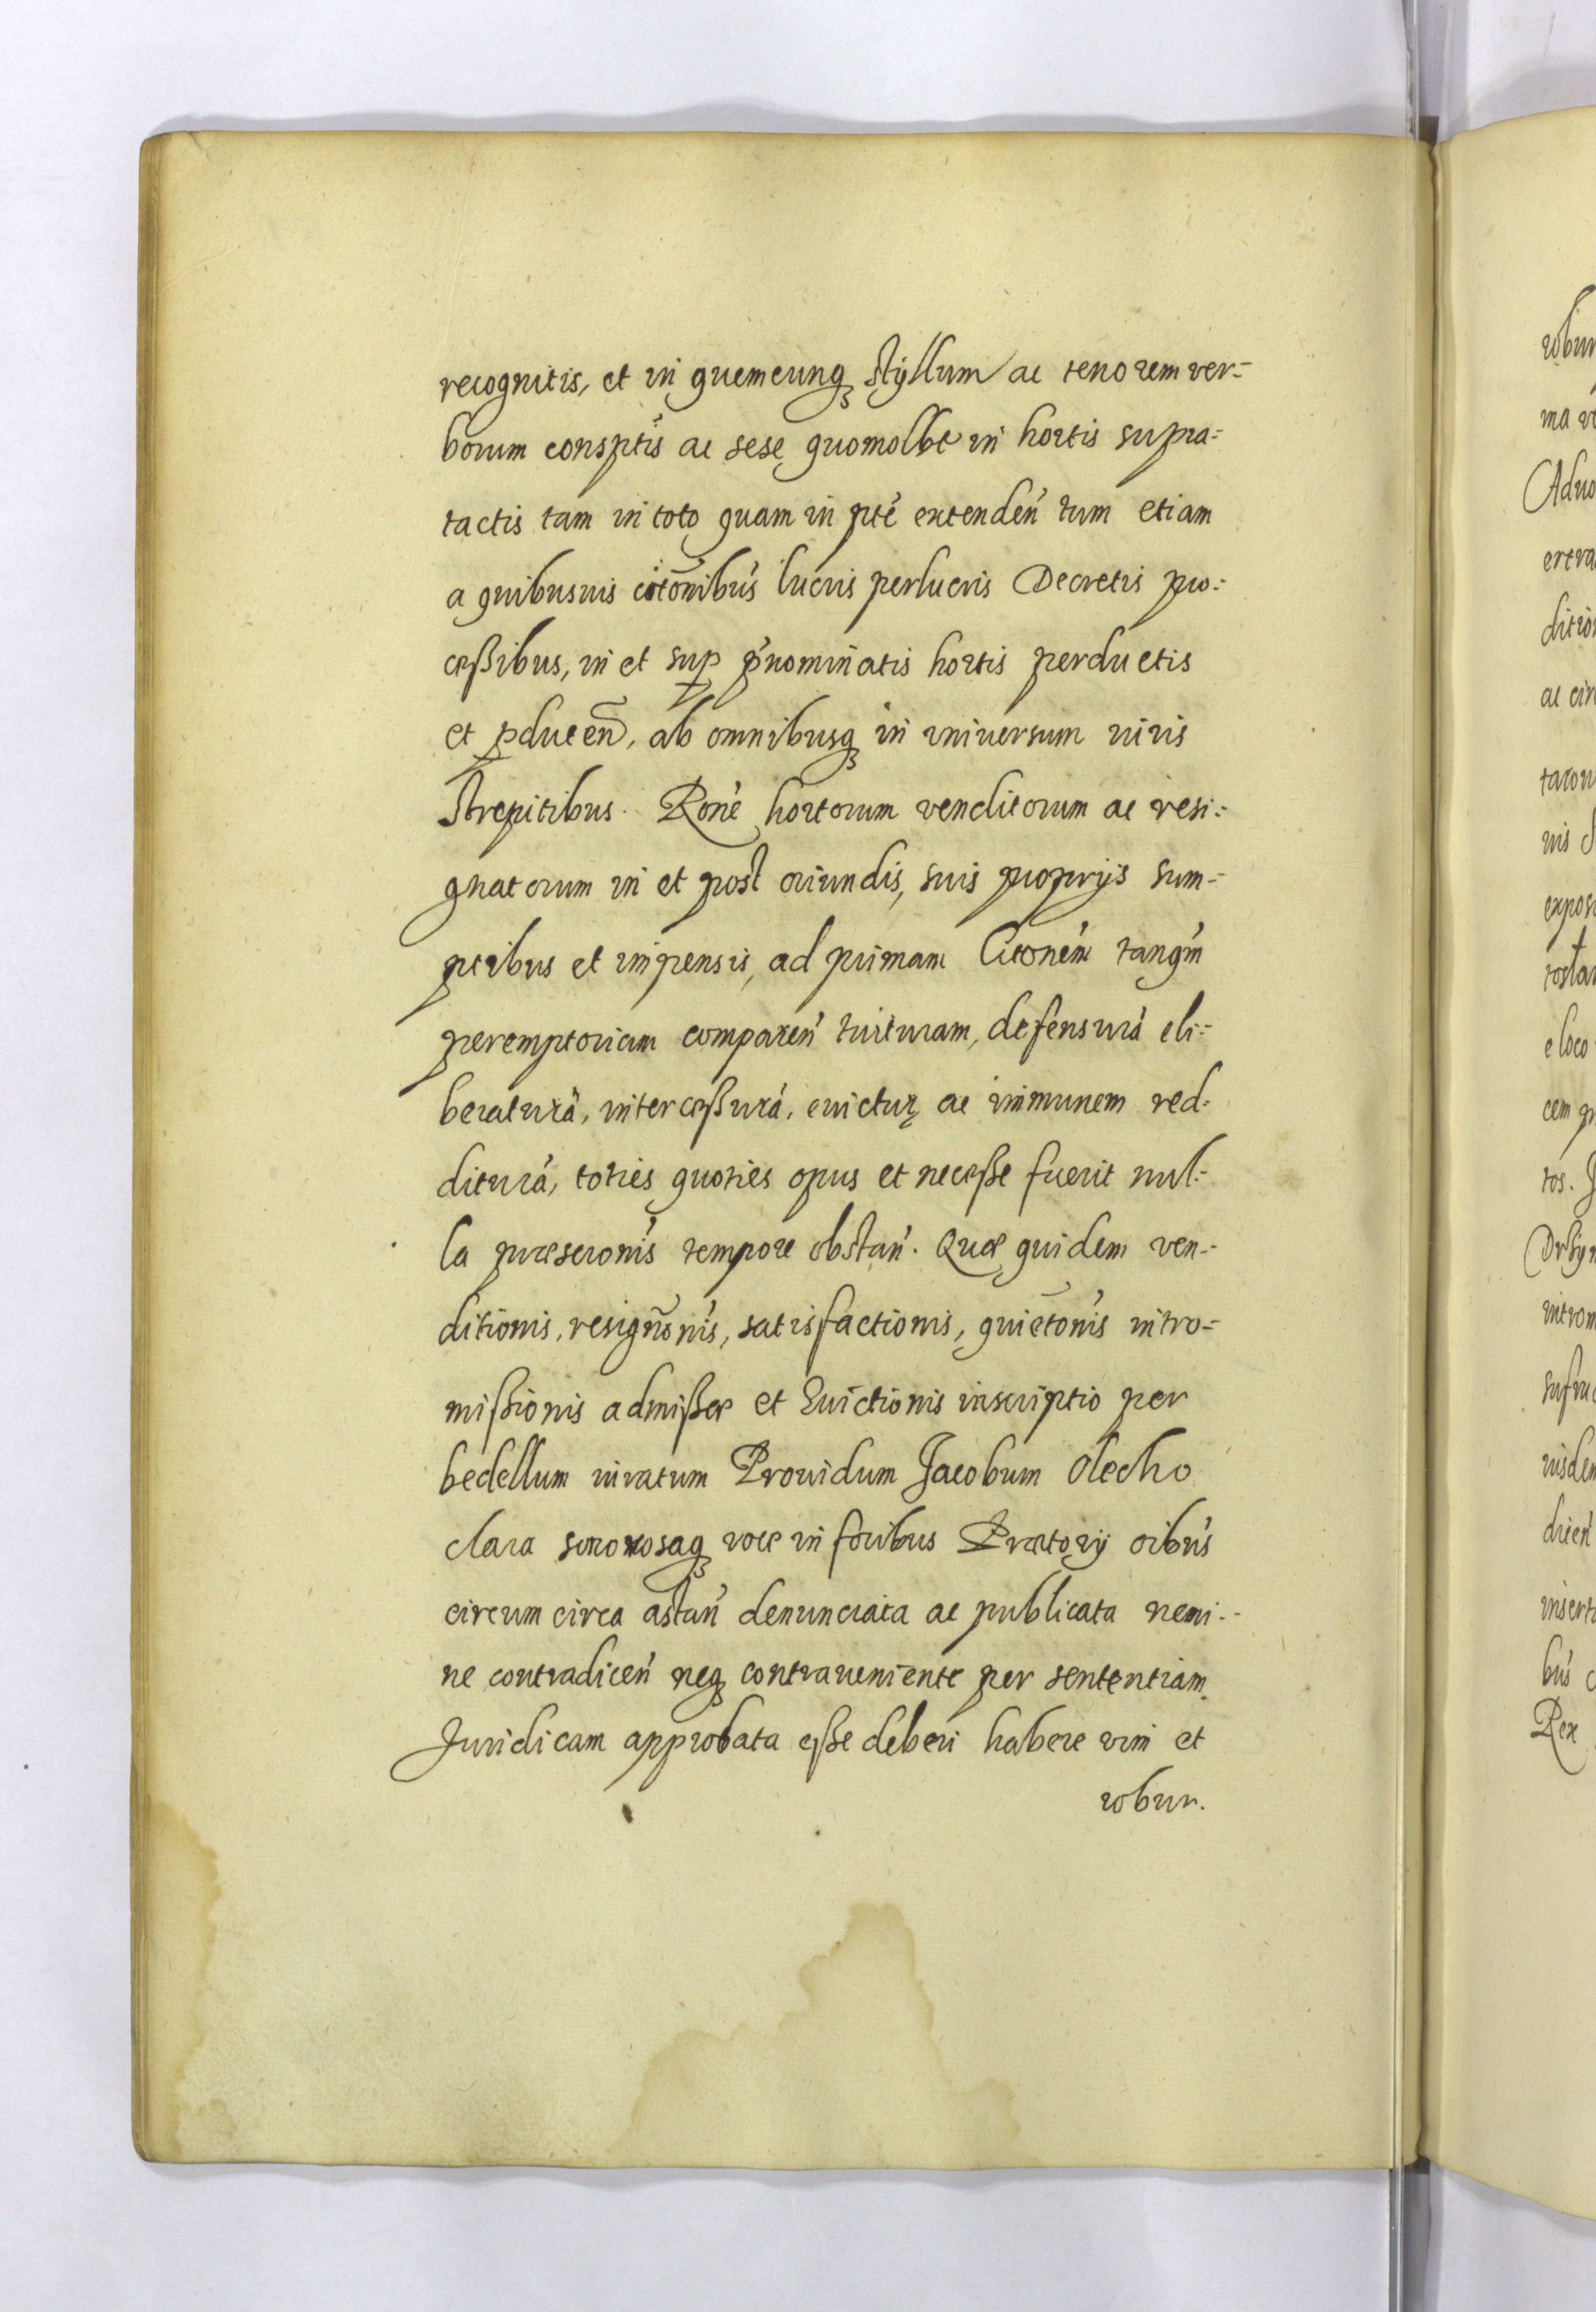 recognitis, et in quemcunq stÿllum ac tenorem ver=
borum consptis ac sese quomolbt in hortis supra=
tactis tam in toto quam in pte extenden tum etiam
a quibusuis citõnibus lucris perlucris Decretis pro=
ceßibus, in et sup pnominatis hortis perductis
et pducen, ab omnibusq in vniuersum iuris
strepitibus. Rone hortorum venditorum ac resi=
gnatorum in et post oriundis, suis proprijs sum=
ptibus et impensis, ad primam Citonem tanqm
peremptoriam comparen tuituram, defensura eli=
beratura, interceßura, euictur ac immunem red=
ditura, toties quoties opus et neceße fuerit nul=
la præscronis tempore obstan. Quæ quidem ven=
ditionis, resignonis, satisfactionis, quietonis intro=
mißionis admißæ et Euictionis inscriptio per
bedellum iuratum Prouidum Jacobum Olecho
clara sonorosaq voce in foribus Prætorij oibus
circum circa astan denunciata ac publicata nemi=
ne contradicen neq contraueniente per sententiam
Juridicam approbata eße deberi habere vim et
robur.
robur
ma
Aduo
ditio
ac cir
expos
e loco
cem
tos.
introm
insert
bus
Rex